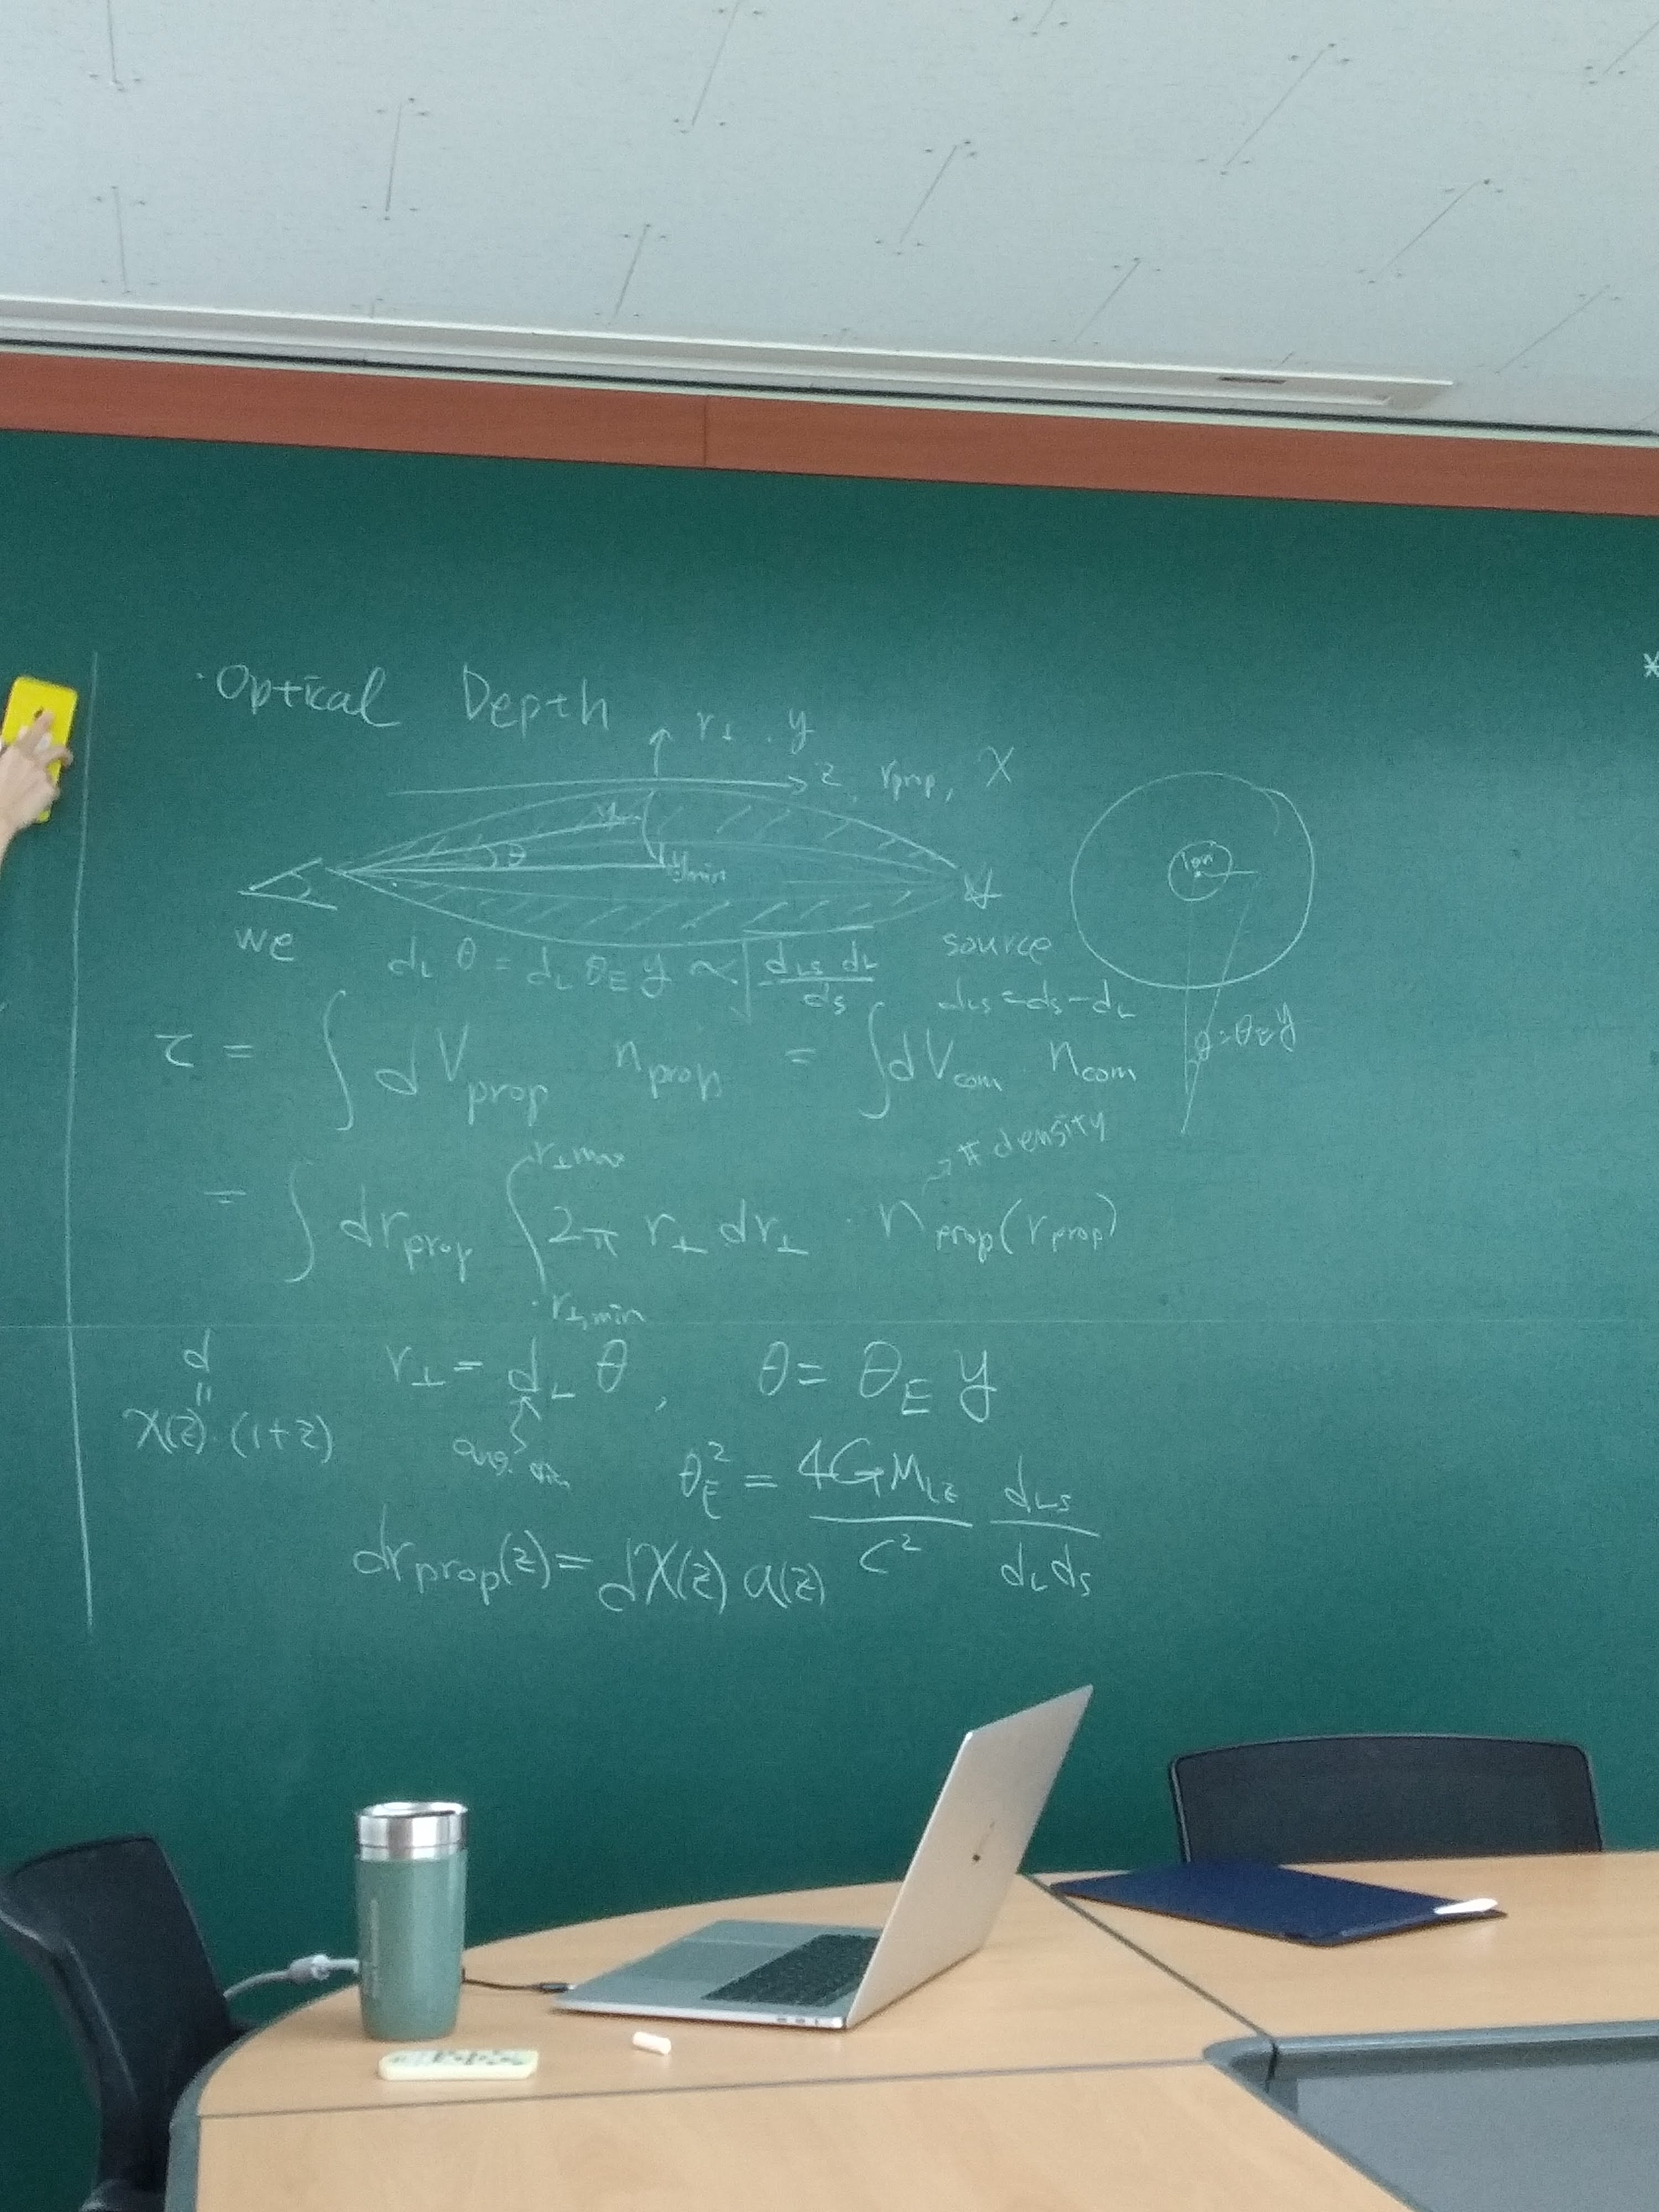 · Optical Depth
r⊥ , y
z, rprop, χ
θ
ymin
we
source
dL θ = dL θE y ∝ √(dLS dL / dS)
dLS = dS - dL
θ = θE y
τ = ∫ dVprop nprop = ∫ dVcom ncom
→ # density
= ∫ drprop ∫_{r⊥,min}^{r⊥max} 2π r⊥ dr⊥ · nprop(rprop)
d
"
χ(z) · (1+z)
r⊥ = dL θ , θ = θE y
θE² = 4GMLz / c² dLS / dL dS
drprop(z) = dχ(z) a(z)